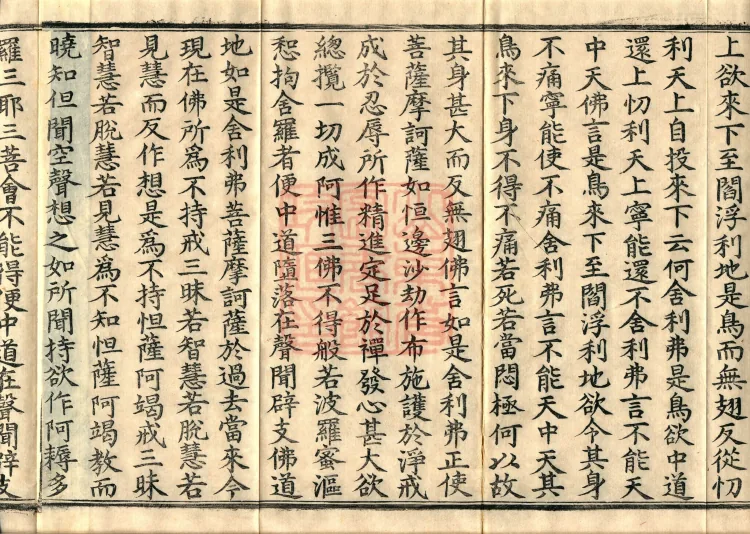 上欲來下至閻浮利地是鳥而無翅反從忉
利天上自投來下云何舍利弗是鳥欲中道
還上忉利天上寧能還不舍利弗言不能天
中天佛言是鳥來下至閻浮利地欲令其身
不痛寧能使不痛舍利弗言不能天中天其
鳥來下身不得不痛若死若當悶極何以故
其身甚大而反無翅佛言如是舍利弗正使
菩薩摩訶薩如恒邊沙劫作布施護於淨戒
成於忍辱所作精進定足於禪發心甚大欲
總攬一切成阿惟三佛不得般若波羅蜜漚
惒拘舍羅者便中道墮落在聲聞辟支佛道
地如是舍利弗菩薩摩訶薩於過去當來今
現在佛所爲不持戒三昧若智慧若脫慧若
見慧而反作想是爲不持怛薩阿竭戒三昧
智慧若脫慧若見慧爲不知怛薩阿竭教而
曉知但聞空聲想之如所聞持欲作阿耨多
羅三耶三菩會不能得便中道在聲聞辟支